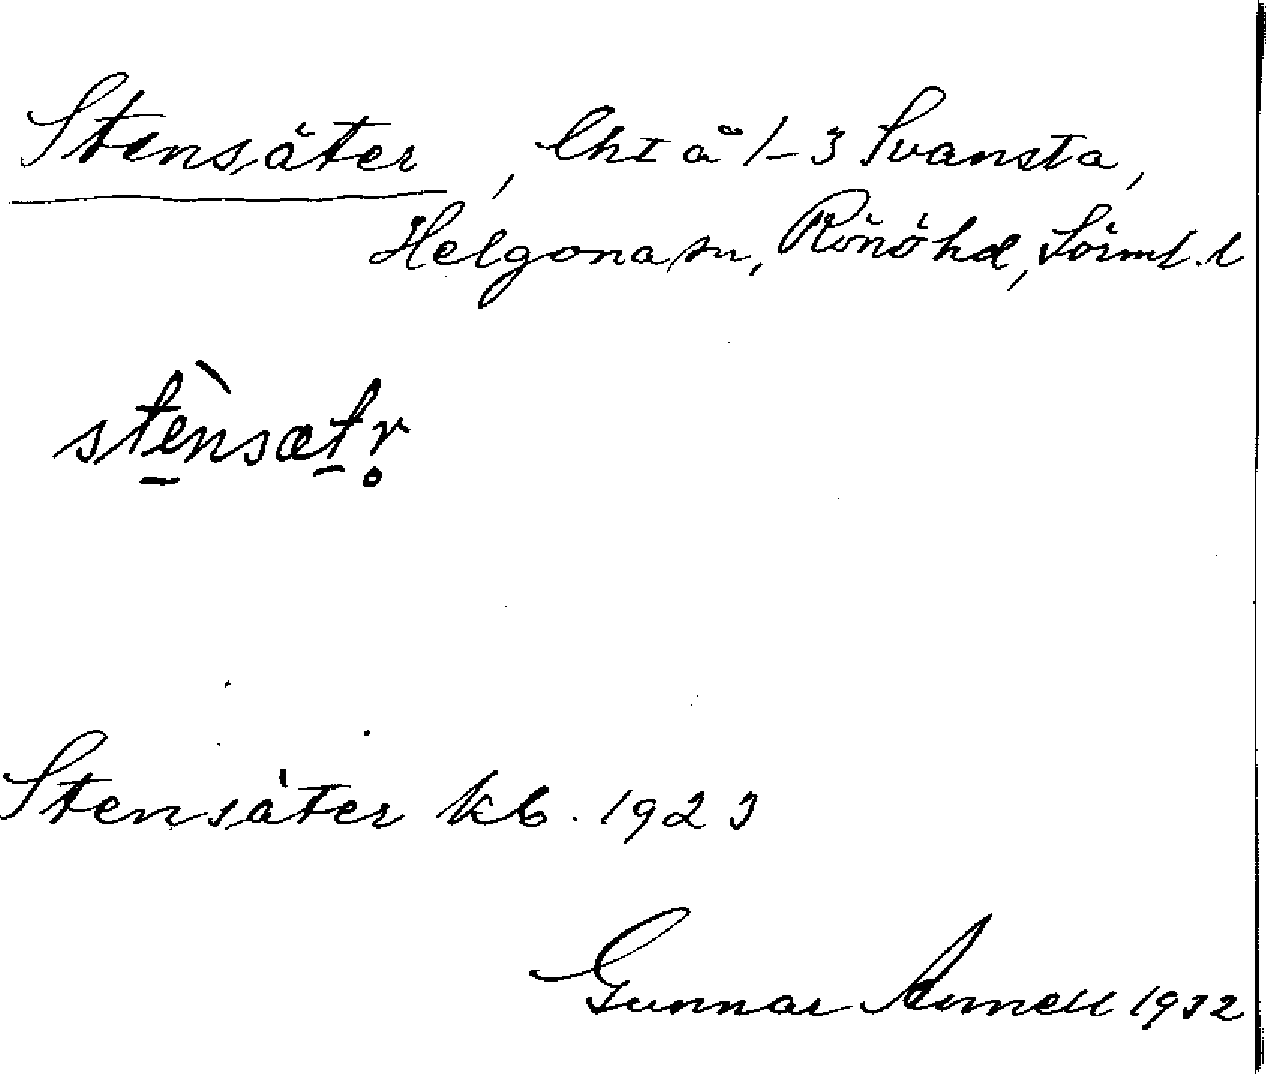 Stensäter, lht å 1-3 Svansta,
Helgona sn, Rönö hd, Sörml. l
stènsætr̥
Stensäter kb. 1923
Gunnar 1932